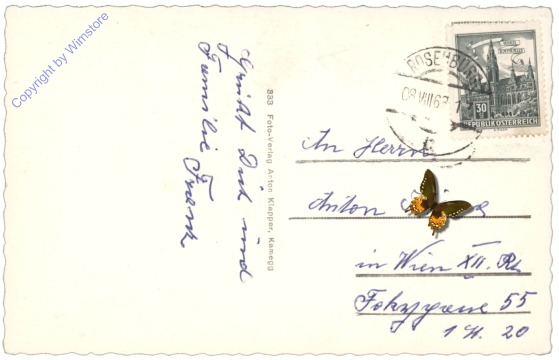 Copyright by Wimstore
Grüßt Dich und
Familie Frank
333 Foto-Verlag Anton Klapper, Kamegg
ROSENBURG
08.VIII.63
WIEN
RATHAUS
30
REPUBLIK ÖSTERREICH
An Herrn
Anton
in Wien XII.
55
1 St. 20